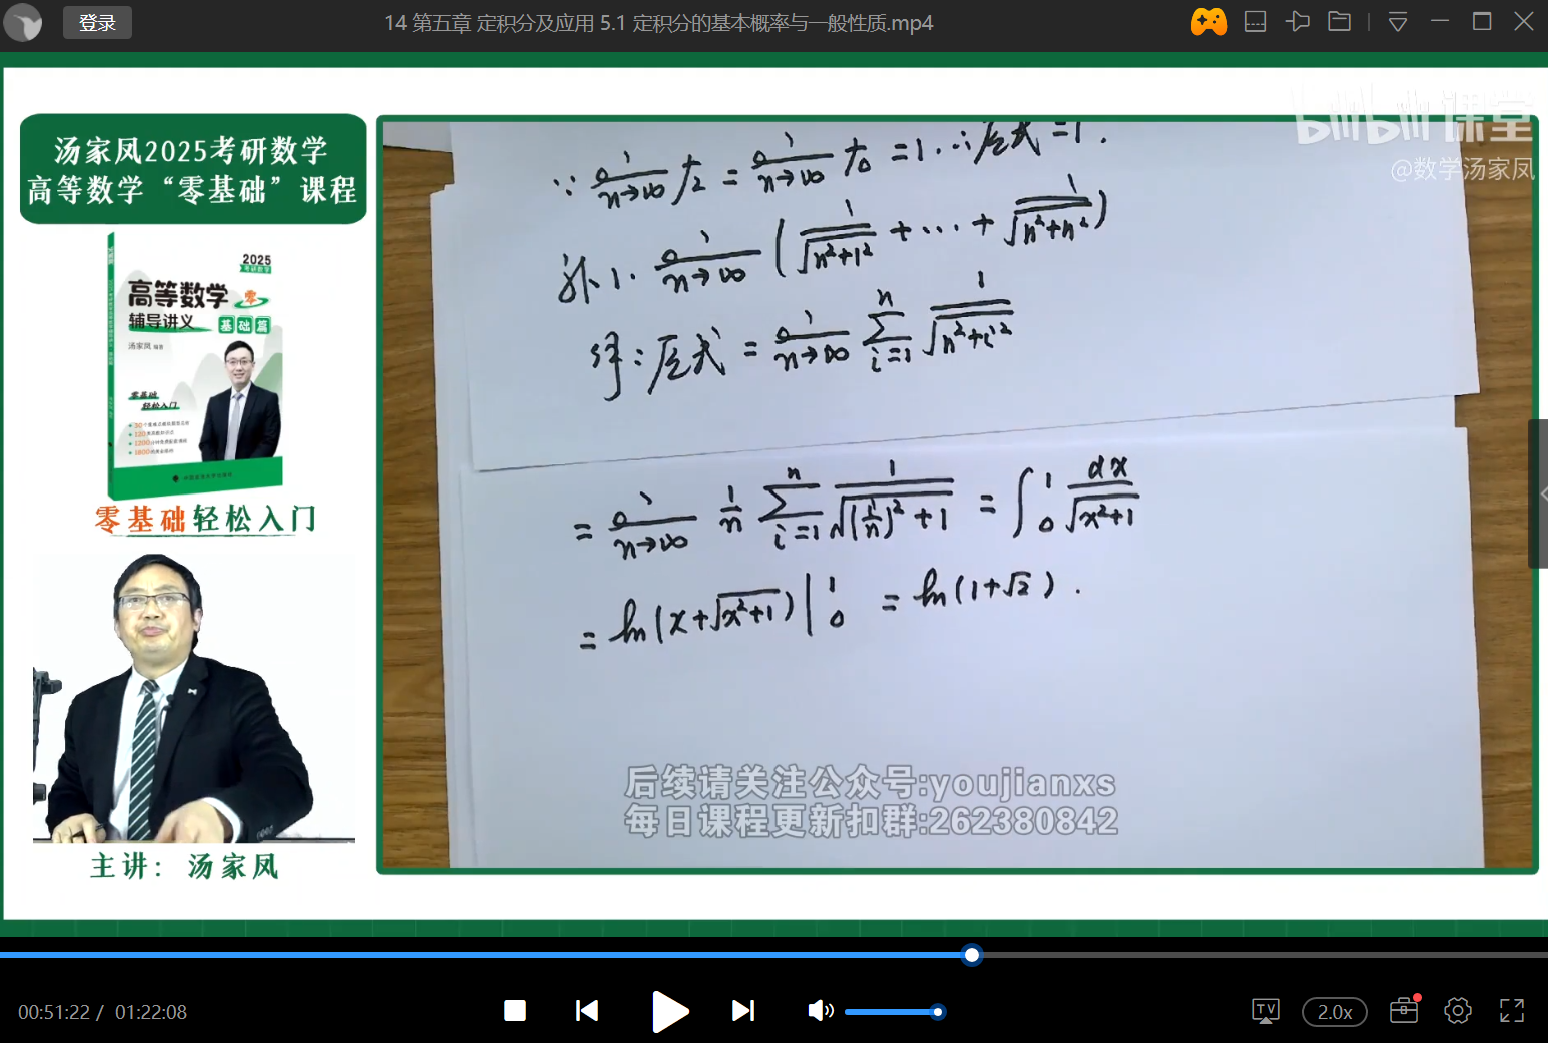 登录
14 第五章 定积分及应用 5.1 定积分的基本概率与一般性质.mp4
汤家凤2025考研数学
高等数学“零基础”课程
2025
高等数学 零
辅导讲义 基础篇
汤家凤 编著
零基础
轻松入门
零基础轻松入门
主讲：汤家凤
bilibili课堂
@数学汤家凤
∵ lim n→∞ = lim n→∞ = 1. ∴ 原式 = 1.
例1. lim n→∞ (1/√(n²+1²) + … + 1/√(n²+n²))
解: 原式 = lim n→∞ Σ i=1 n 1/√(n²+i²)
= lim n→∞ 1/n Σ i=1 n 1/√((i/n)²+1) = ∫ 0 1 dx/√(x²+1)
= ln(x+√(x²+1)) | 0 1 = ln(1+√2).
后续请关注公众号:youjianxs
每日课程更新扣群:262380842
00:51:22 / 01:22:08
TV
2.0x